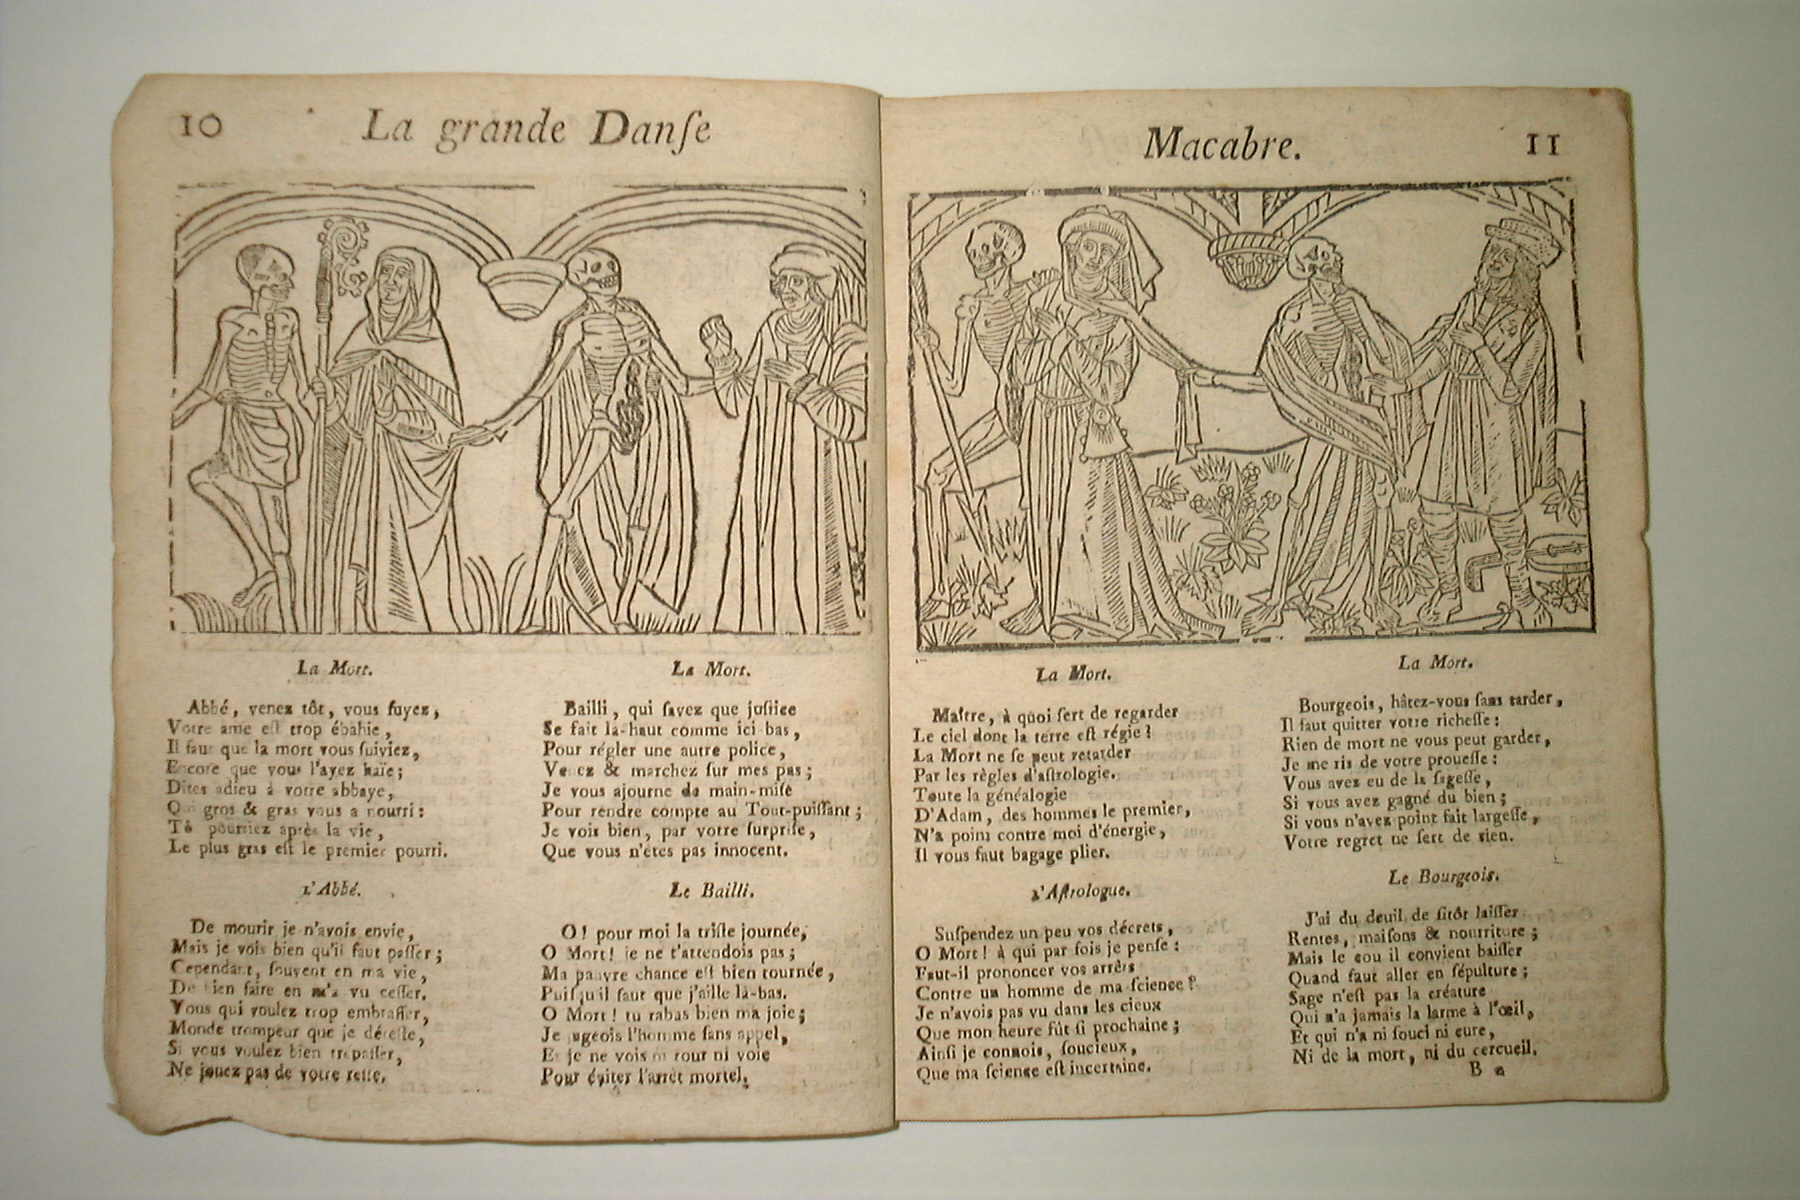 10
La grande Danſe
La Mort.
Abbé, venez tôt, vous fuyez,
Votre ame eſt trop ébahie,
Il faut que la mort vous ſuiviez,
Encore que vous l'ayez haïe;
Dites adieu à votre abbaye,
Qui gros & gras vous a nourri:
Tô pourriez après la vie,
Le plus gras eſt le premier pourri.
L'Abbé.
De mourir je n'avois envie,
Mais je vois bien qu'il faut paſſer;
Cependant, ſouvent en ma vie,
De bien faire en m'a vu ceſſer.
Vous qui voulez trop embraſſer,
Monde trompeur que je déteſte,
Si vous voulez bien trépaſſer,
Ne jouez pas de votre reſte.
La Mort.
Bailli, qui ſavez que juſtice
Se fait là-haut comme ici bas,
Pour régler une autre police,
Venez & marchez ſur mes pas;
Je vous ajourne de main-miſe
Pour rendre compte au Tout-puiſſant;
Je vois bien, par votre ſurpriſe,
Que vous n'êtes pas innocent.
Le Bailli.
O! pour moi la triſte journée,
O Mort! je ne t'attendois pas;
Ma pauvre chance eſt bien tournée,
Puiſqu'il faut que j'aille là-bas.
O Mort! tu rabas bien ma joie;
Je jugeois l'homme ſans appel,
Et je ne vois ni tour ni voie
Pour éviter l'arrêt mortel.
Macabre.
11
La Mort.
Maître, à quoi ſert de regarder
Le ciel dont la terre eſt régie?
La Mort ne ſe peut retarder
Par les règles d'aſtrologie.
Toute la généalogie
D'Adam, des hommes le premier,
N'a point contre moi d'énergie,
Il vous faut bagage plier.
L'Aſtrologue.
Suſpendez un peu vos décrets,
O Mort! à qui par fois je penſe:
Faut-il prononcer vos arrêts
Contre un homme de ma ſcience?
Je n'avois pas vu dans les cieux
Que mon heure fût ſi prochaine;
Ainſi je connois, ſoucieux,
Que ma ſcience eſt incertaine.
La Mort.
Bourgeois, hâtez-vous ſans tarder,
Il faut quitter votre richeſſe:
Rien de mort ne vous peut garder,
Je me ris de votre proueſſe:
Vous avez eu de la ſageſſe,
Si vous avez gagné du bien;
Si vous n'avez point fait largeſſe,
Votre regret ne ſert de rien.
Le Bourgeois.
J'ai du deuil de ſitôt laiſſer
Rentes, maiſons & nourriture;
Mais le cou il convient baiſſer
Quand faut aller en ſépulture;
Sage n'eſt pas la créature
Qui n'a jamais la larme à l'œil,
Et qui n'a ni ſouci ni cure,
Ni de la mort, ni du cercueil.
B